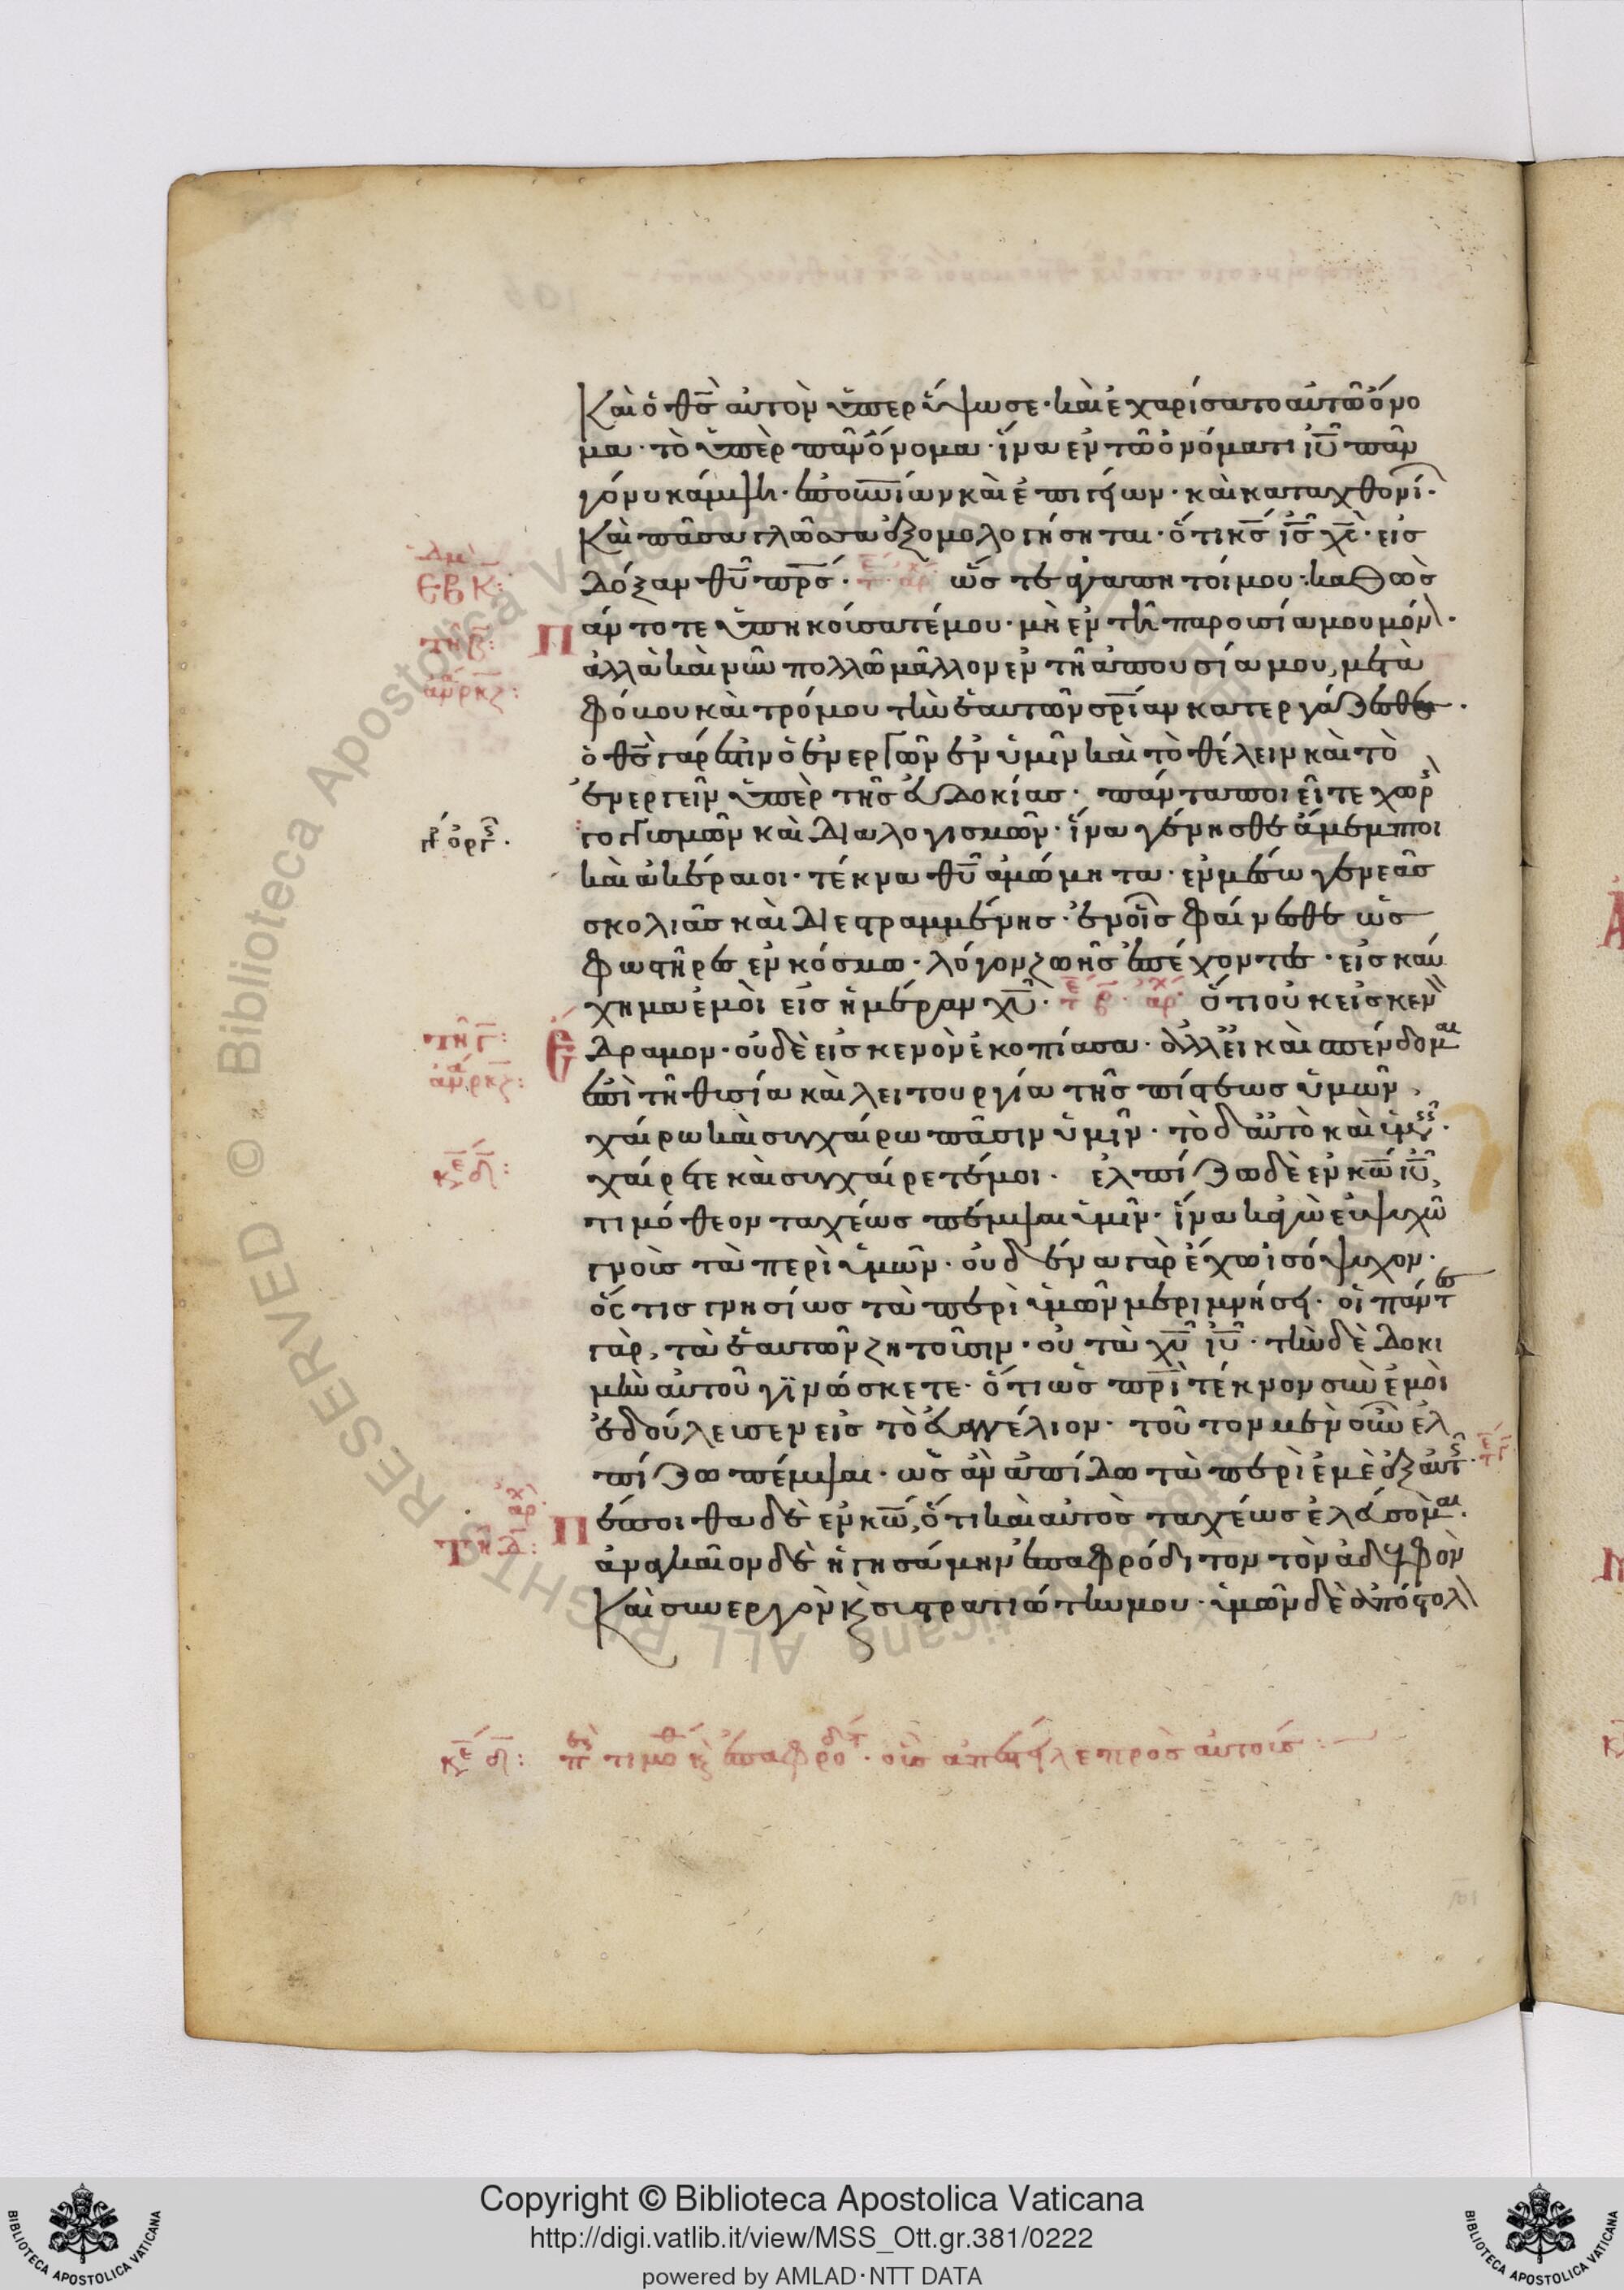 Καὶ ὁ θς̅ αὐτὸν ὑπερύψωσε· καὶ ἐχαρίσατο αὐτῶ ὄνο
μα· τὸ ὑπὲρ πᾶν ὄνομα· ἵνα ἐν τῶ ὀνόματι ιυ̅ πᾶν
γόνυ κάμψη· ἐπουνίων καὶ ἐπιγείων· καὶ καταχθονί·
Καὶ πᾶσα γλῶσσα ἐξομολογήσηται· ὅτι κς̅ ις̅ χς̅· εἰς
δόξαν θυ̅ πρς̅· ὥστε ἀγαπητοί μου· καθὼς
πάντοτε ὑπηκούσατέ μου· μὴ ἐν τῆ παρουσία μου μόν·
ἀλλὰ καὶ νῦν πολλῶ μᾶλλον ἐν τῆ ἀπουσία μου, μετὰ
φόβου καὶ τρόμου τὴν ἑαυτῶν σρίαν κατεργάζεσθε·
ὁ θς̅ γάρ ἐστιν ὁ ἐνεργῶν ἐν ὑμῖν καὶ τὸ θέλειν καὶ τὸ
ἐνεργεῖν ὑπὲρ τῆς εὐδοκίας· πάντα ποιεῖτε χωρ
γογγισμῶν καὶ διαλογισμῶν· ἵνα γένησθε ἄμεμπτοι
καὶ ἀκέραιοι· τέκνα θυ̅ ἀμώμητα· ἐν μέσω γενεᾶς
σκολιᾶς καὶ διεστραμμένης· ἐν οἷς φαίνεσθε ὡς
φωστῆρες ἐν κόσμω· λόγον ζωῆς ἐπέχοντες· εἰς καύ
χημα ἐμοὶ εἰς ἡμέραν χυ̅· ὅτι οὐκ εἰς κεν
Ἔδραμον· οὐδὲ εἰς κενὸν ἐκοπίασα· ἀλλ' εἰ καὶ σπένδομαι
ἐπὶ τῆ θυσία καὶ λειτουργία τῆς πίστεως ὑμῶν,
χαίρω καὶ συγχαίρω πᾶσιν ὑμῖν· τὸ δ' αὐτὸ καὶ ὑμεῖς·
χαίρετε καὶ συγχαίρετέ μοι· ἐλπίζω δὲ ἐν κω̅ ιυ̅,
τιμόθεον ταχέως πέμψαι ὑμῖν· ἵνα καγὼ εὐψυχῶ
γνοὺς τὰ περὶ ὑμῶν· οὐδένα γὰρ ἔχω ἰσόψυχον·
ὅς τις γνησίως τὰ περὶ ὑμῶν μεριμνήσει· οἱ πάντες
γάρ, τὰ ἑαυτῶν ζητοῦσιν· οὐ τὰ χυ̅ ιυ̅· τὴν δὲ δοκι
μὴν αὐτοῦ γϊνώσκετε· ὅτι ὡς πρι̅ τέκνον σὺν ἐμοὶ
ἐδούλευσεν εἰς τὸ εὐαγγέλιον· τοῦτον μὲν οὖν ἐλ
πίζω πέμψαι· ὡς ἂν ἀπίδω τὰ περὶ ἐμὲ ἐξ αυτῆς·
Πέποιθα δὲ ἐν κω̅, ὅτι καὶ αὐτὸς ταχέως ἐλεύσομαι·
ἀναγκαῖον δὲ ἡγησάμην ἐπαφρόδιτον τὸν ἀδελφὸν
Καὶ συνεργὸν κ̀ συστρατιώτην μου· ὑμῶν δὲ ἀπόστολ
κε δ: π τιμοθ κ̀ ἐπαφροδτ· οὓς ἀπέστειλε πρὸς αὐτούς:
Copyright © Biblioteca Apostolica Vaticana
http://digi.vatlib.it/view/MSS_Ott.gr.381/0222
powered by AMLAD·NTT DATA
BIBLIOTECA APOSTOLICA VATICANA
BIBLIOTECA APOSTOLICA VATICANA